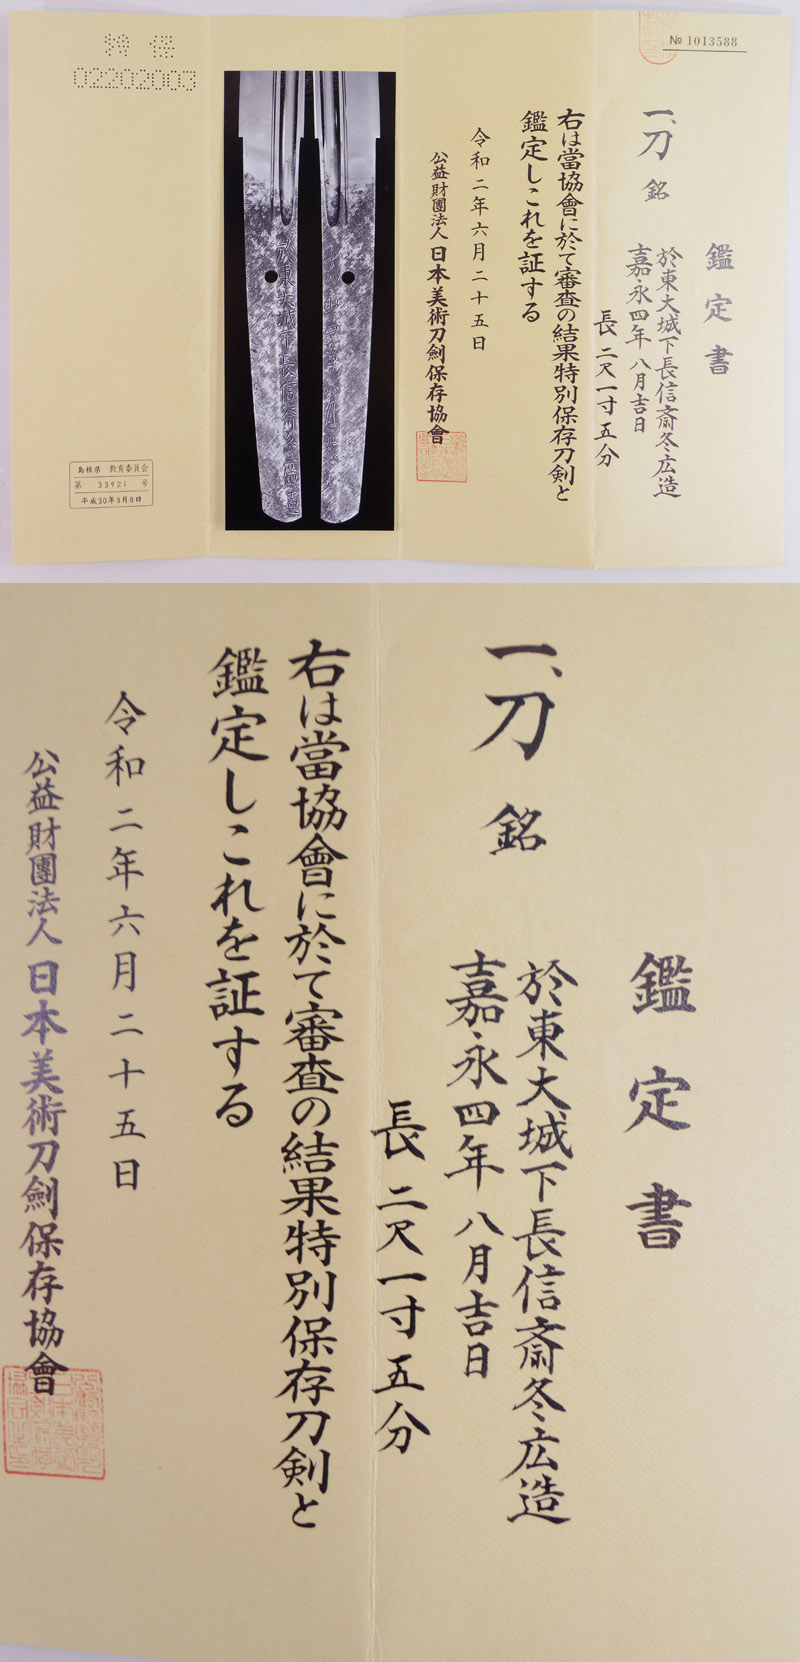 № 1013588
鑑定書
一、刀 銘
於東大城下長信斎冬広造
嘉永四年八月吉日
長 二尺一寸五分
右は當協會に於て審査の結果特別保存刀剣と
鑑定しこれを証する
令和二年六月二十五日
公益財團法人 日本美術刀劍保存協會
特保
02202003
島根県 教育委員会
第 33921 号
平成30年3月8日
鑑定書
一、刀 銘
於東大城下長信斎冬広造
嘉永四年八月吉日
長 二尺一寸五分
右は當協會に於て審査の結果特別保存刀剣と
鑑定しこれを証する
令和二年六月二十五日
公益財團法人 日本美術刀劍保存協會